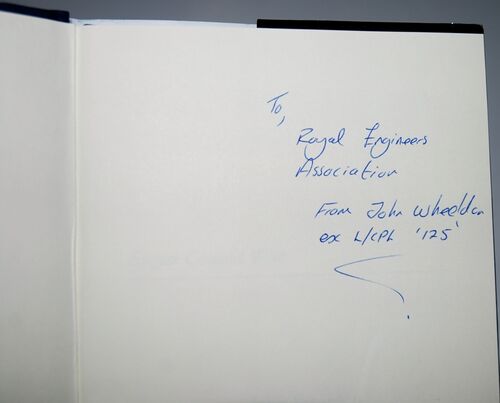 To,
Royal Engineers
Association
From John Wheeldon
ex L/CPL '125'